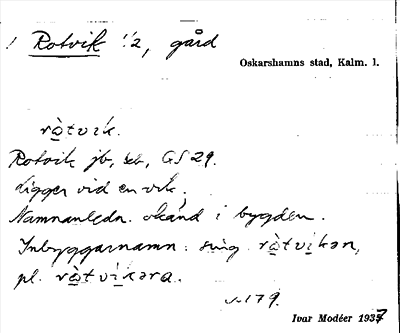 ! Rotvik 1/2, gård
Oskarshamns stad, Kalm. l.
ròtvik.
Rotvik jb, GS 29.
Ligger vid en vik,
Namnanledn. okänd i bygden.
Inbyggarnamn: sing. ròtvikən,
pl. ròtvikəra.
179.
Ivar Modéer 1937